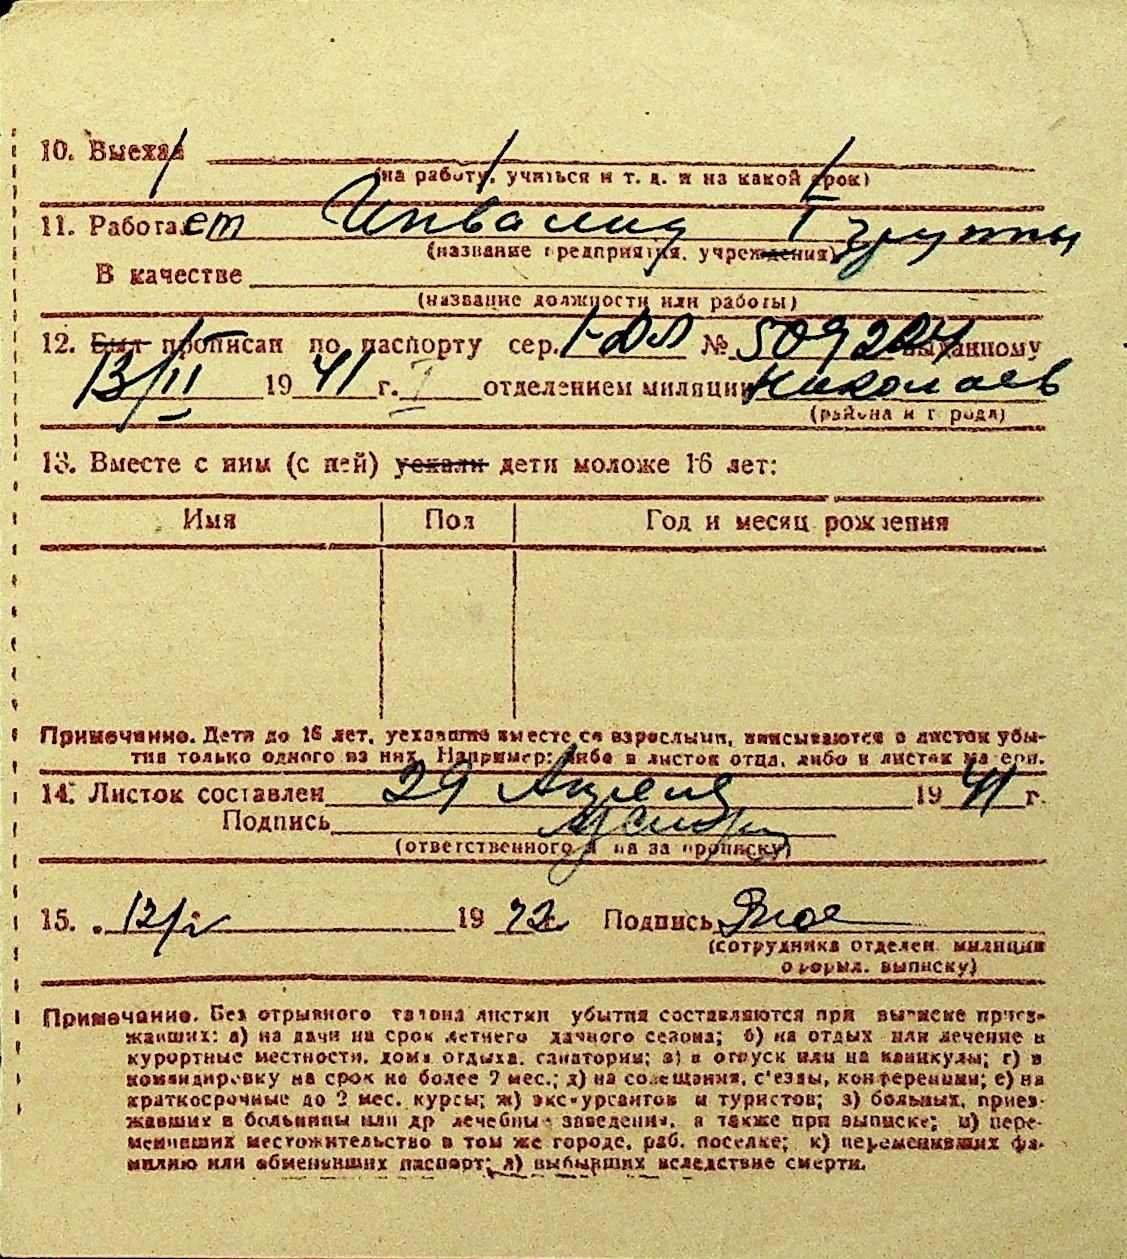 10. Выехал
(на работу, учиться и т. д. и на какой срок)
11. Работает Инвалид I группы
(название предприятия, учреждения)
В качестве
(название должности или работы)
12. Был прописан по паспорту сер. № 509204 выданному
13/II 1941 г. I отделением милиции Николаев
(района и города)
13. Вместе с ним (с ней) уехали дети моложе 16 лет:
Имя Пол Год и месяц рождения
Примечание. Дети до 16 лет, уехавшие вместе со взрослыми, вписываются в листок убы-
тия только одного из них. Например: либо в листок отца, либо в листок матери.
14. Листок составлен 29 Апреля 1941 г.
Подпись
(ответственного лица за прописку)
15. 12/ 19 г. Подпись
(сотрудника отделен. милиции
оформл. выписку)
Примечание. Без отрывного талона листки убытия составляются при выписке приез-
жавших: а) на дачи на срок летнего дачного сезона; б) на отдых или лечение в
курортные местности, дома отдыха, санатории; в) в отпуск или на каникулы; г) в
командировку на срок не более 2 мес.; д) на совещания, с'езды, конференции; е) на
краткосрочные до 2 мес. курсы; ж) экскурсантов и туристов; з) больных, приез-
жавших в больницы или др лечебные заведения, а также при выписке; и) пере-
менивших местожительство в том же городе, раб. поселке; к) переменивших фа-
милию или обменявших паспорт; л) выбывших вследствие смерти.